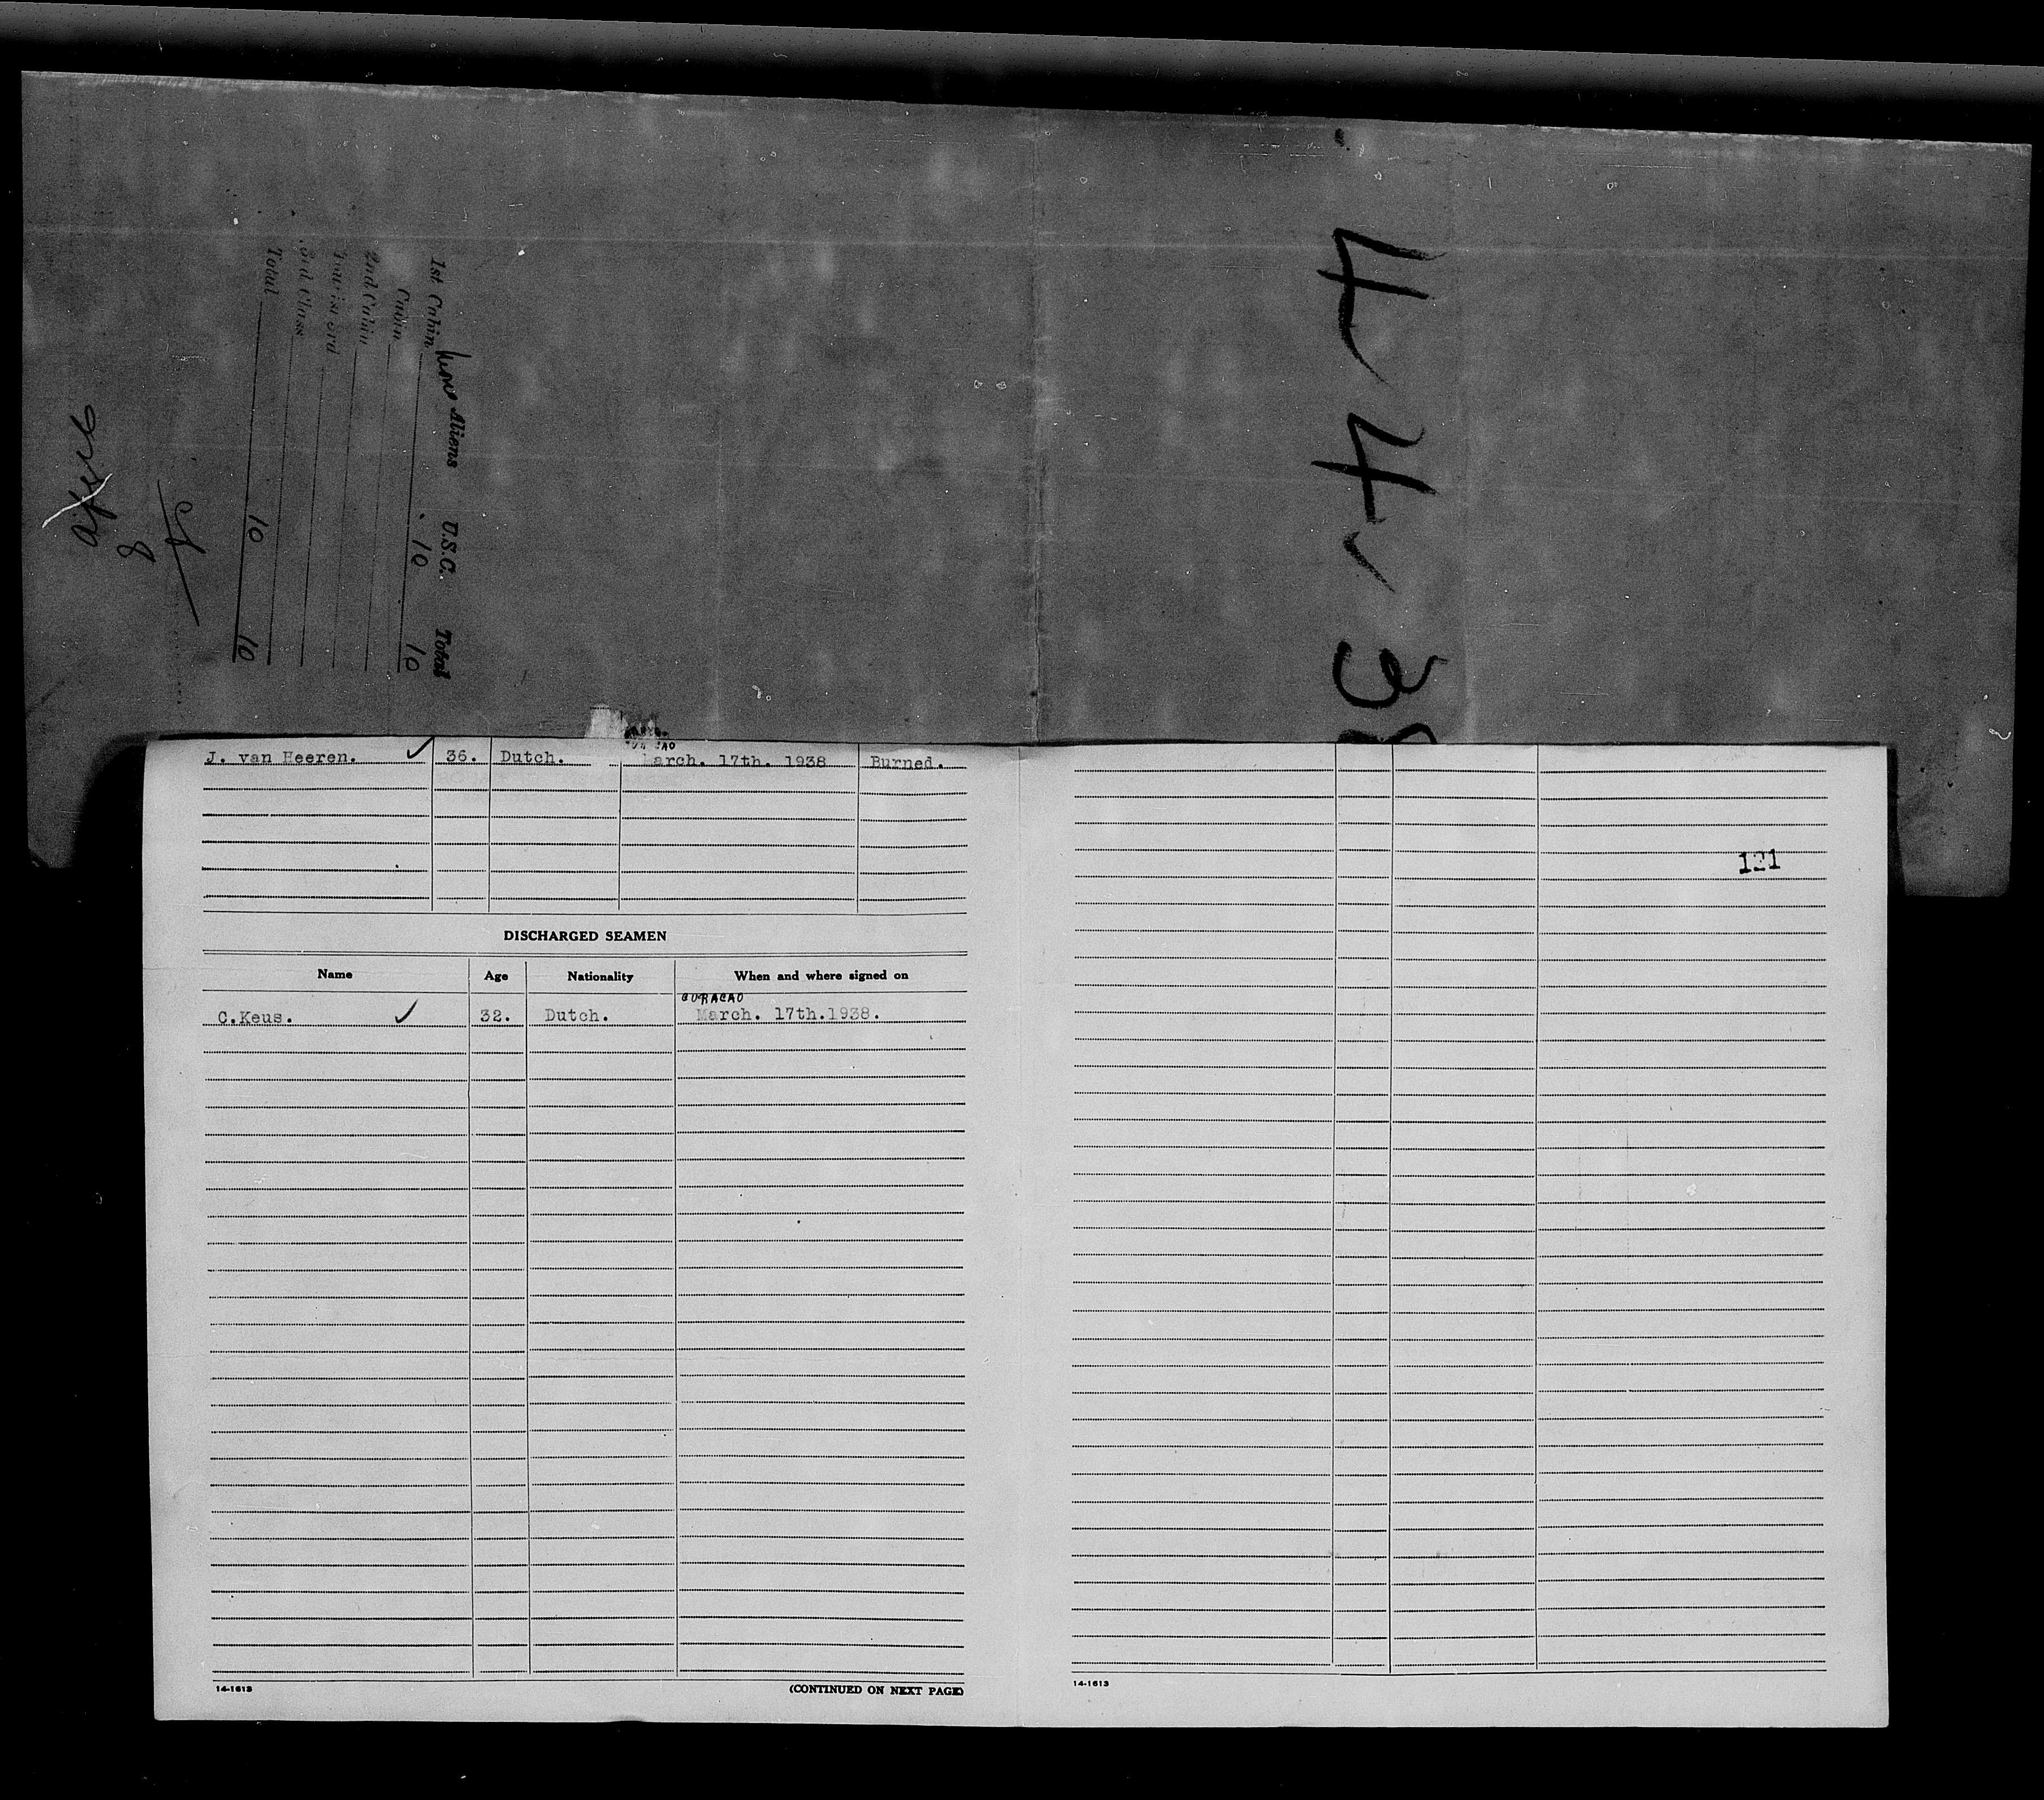 Aliens U.S.C. Total
1st Cabin 10 10
Cabin
2nd Cabin
Tourist 3rd
3rd Class
Total 10 10
8
4-4-38
J. van Heeren. ✓ 36. Dutch. March. 17th. 1938 Burned.
121
DISCHARGED SEAMEN
Name Age Nationality When and where signed on
CURACAO
C.Keus. ✓ 32. Dutch. March. 17th.1938.
14-1613 (CONTINUED ON NEXT PAGE)
14-1613